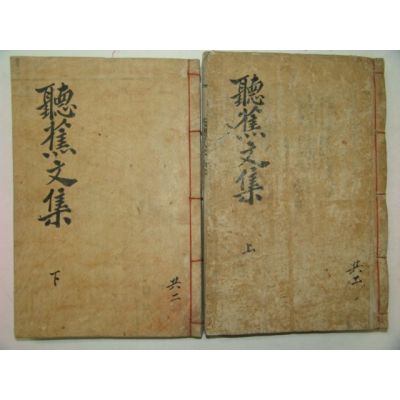 聽樵文集
上
共二
聽樵文集
下
共二